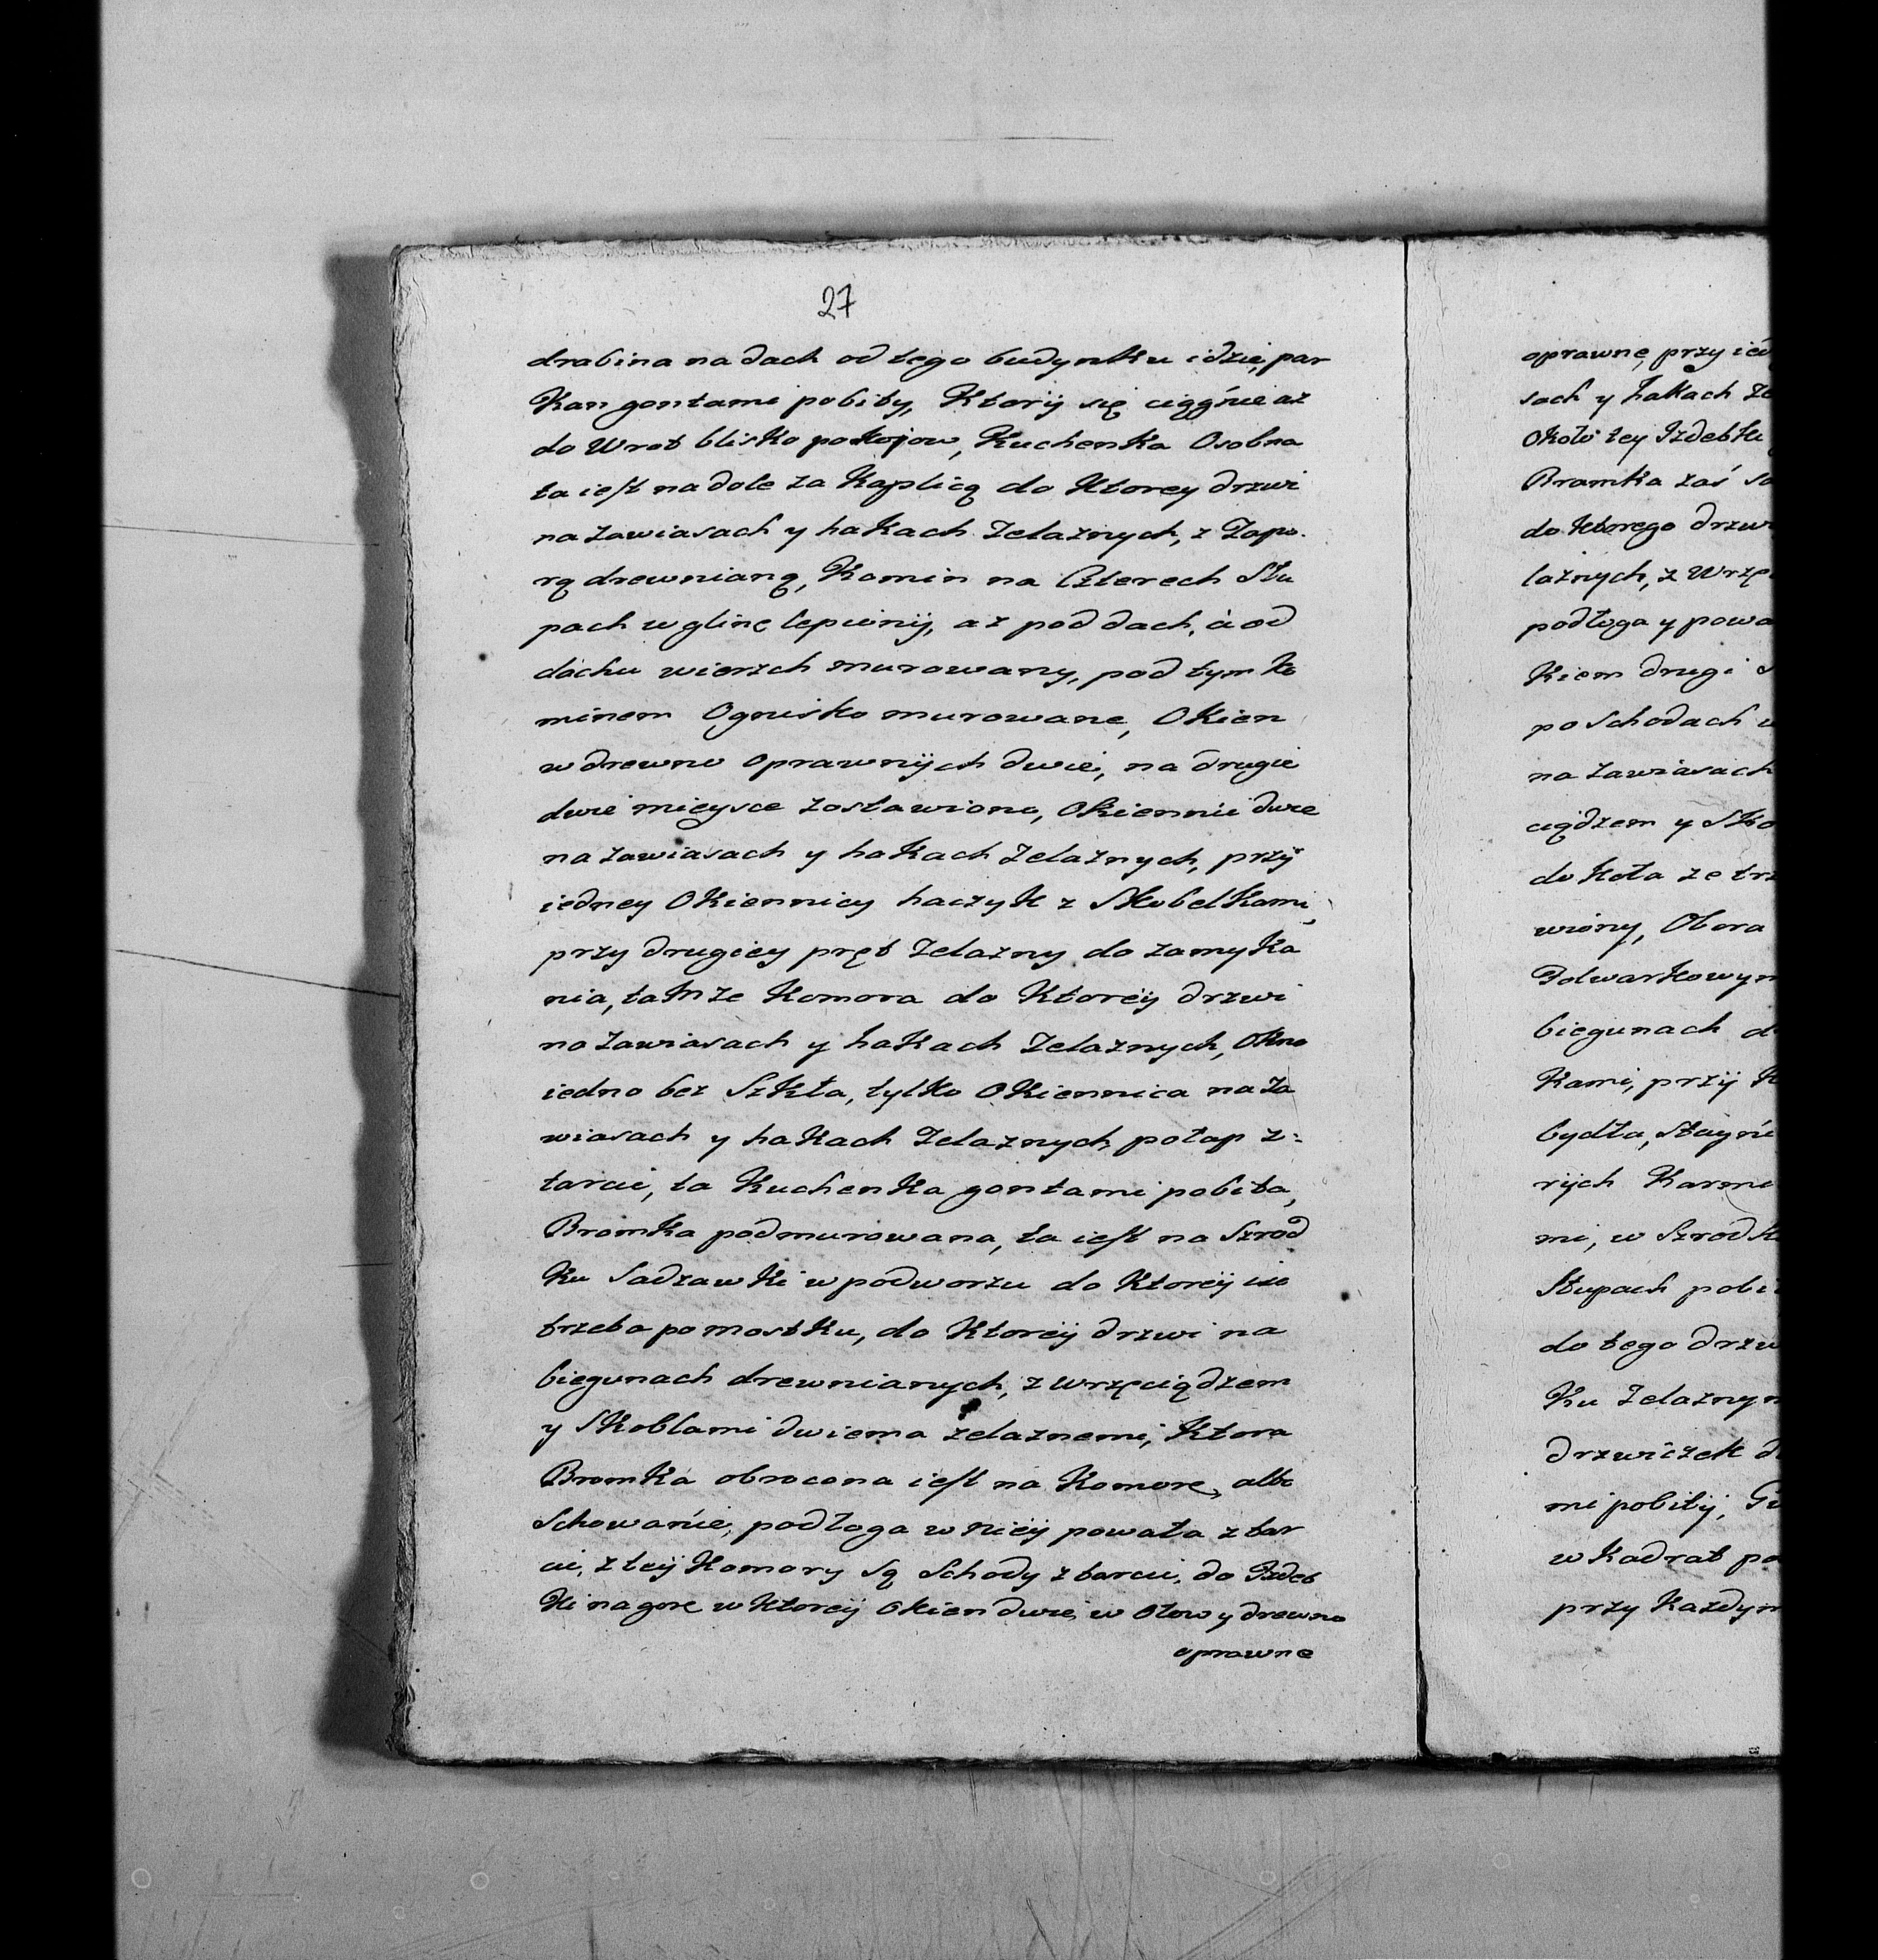 27
drabina na dach od tego budynku idzie, par
kan gontami pobity, Ktorÿ się ciągńie aż
do Wrot blisko pokojow, Kuchenka Osobna
ta iest na dole za Kaplicą do Ktorey drzwi
na zawiasach y hakach Zelaznych, z Zapo-
rą drewnianą, Komin na Czterech Słu
pach w glinę lepionÿ, aż pod dach, à od
dachu wierzch murowany, pod tym ko
minem Ognisko murowane, Okien
w drewno oprawnÿch dwie, na drugie
dwie mieysce zostawiono, Okiennic dwie
na zawiasach y hakach Zelaznych, przÿ
iedney Okiennicy haczyk z Skobelkami,
przy drugiey pręt Zelazny do zamyka
nia, tamże Komora do Ktoreÿ drzwi
na zawiasach y hakach Zelaznych, Okno
iedno bez Szkła, tylko Okiennica na za
wiasach y hakach Zelaznych, połap z:
tarcic, ta Kuchenka gontami pobita,
Bramka podmurowana, ta iest na Szrod
ku Sadzawki w podworzu do Ktoreÿ isc
trzeba po mostku, do Ktoreÿ drzwi na
biegunach drewnianych, z wrzęciądzem
y Skoblami dwiema zelaznemi, Ktora
Bramka obrocona iest na Komorę, albo
Schowańie, podłoga w nieÿ powała z tar
cic, z teÿ Komory są Schody z tarcic, do Izdeb
ki na gorę w Ktoreÿ okien dwie w Ołow y drewno
oprawne
oprawne, przy
sach y hakach
Około tey Izdebki
Bramka zaś
do Ktorego
laznych, z
podłoga y
kiem drugi
po Schodach
na zawiasach
ciądzem y
do koła ze
wiony, Obora
biegunach
kami, przÿ
bydła,
rÿch
mi, w Szrod
Słupach
do tego
ku
drzwiczek
mi pobitÿ,
w Kadrat
przy